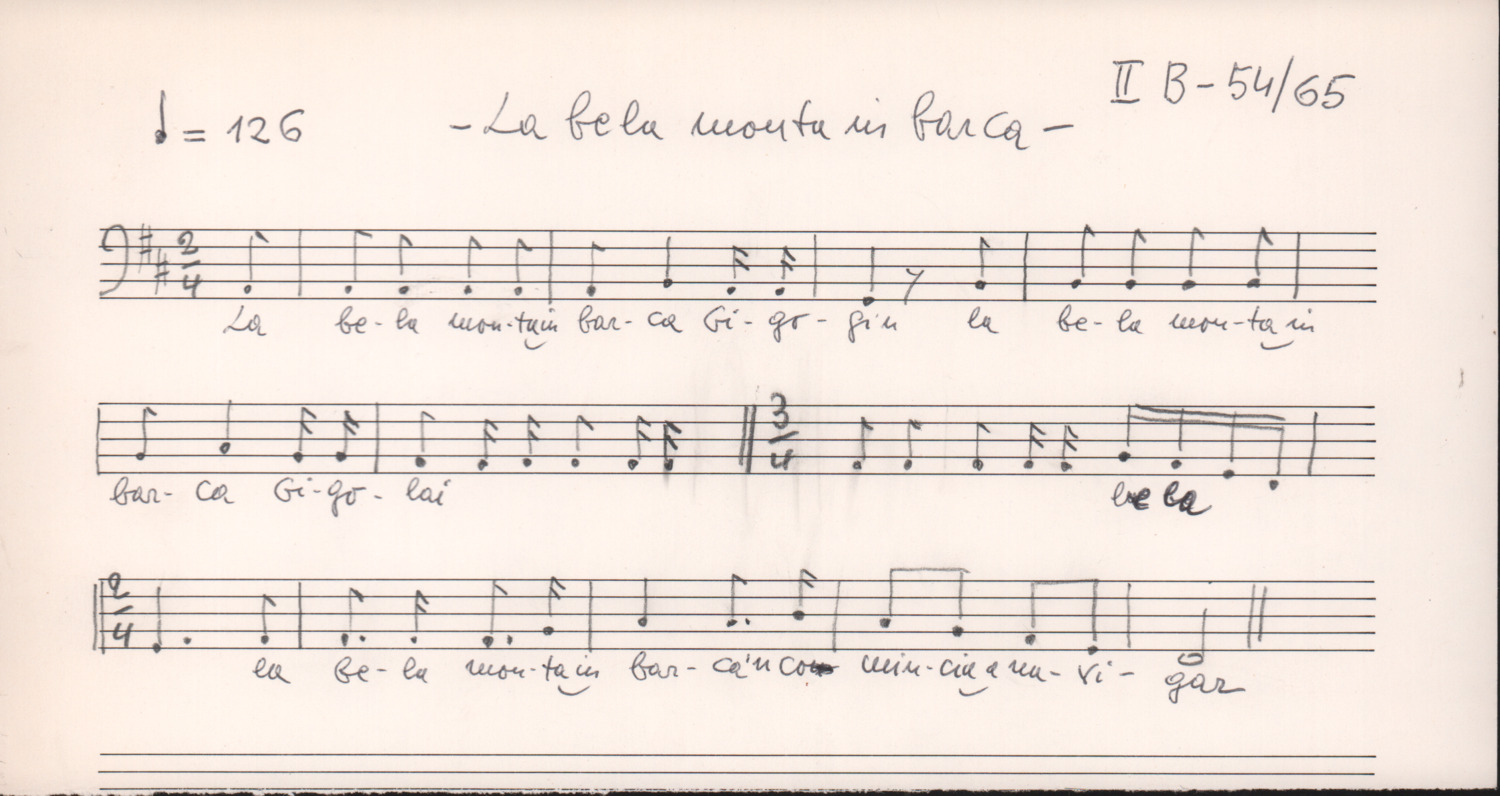 II B-54/65
♩ = 126 - La bela monta in barca -
2/4
La be-la mon-ta in bar-ca Gi-go-gin la be-la mon-ta in
3/4
bar-ca Gi-go-lai bela
2/4
la be-la mon-ta in bar-ca'n co min-cia a na-vi-gar